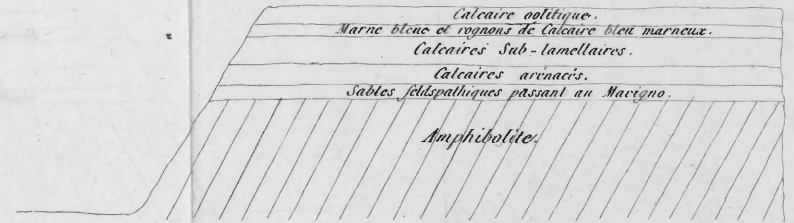 Calcaire oolitique.
Marne bleue et rognons de Calcaire bleu marneux.
Calcaires Sub-lamellaires.
Calcaires arénacés.
Sables feldspathiques passant au Macigno.
Amphibolite.